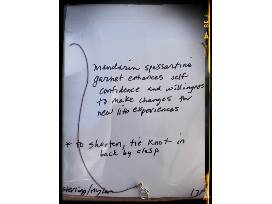 mandarin spessartine
garnet enhances self
confidence and willingness
to make changes for
new life experiences
* to shorten, tie knot in
back by clasp
sterling/nylon